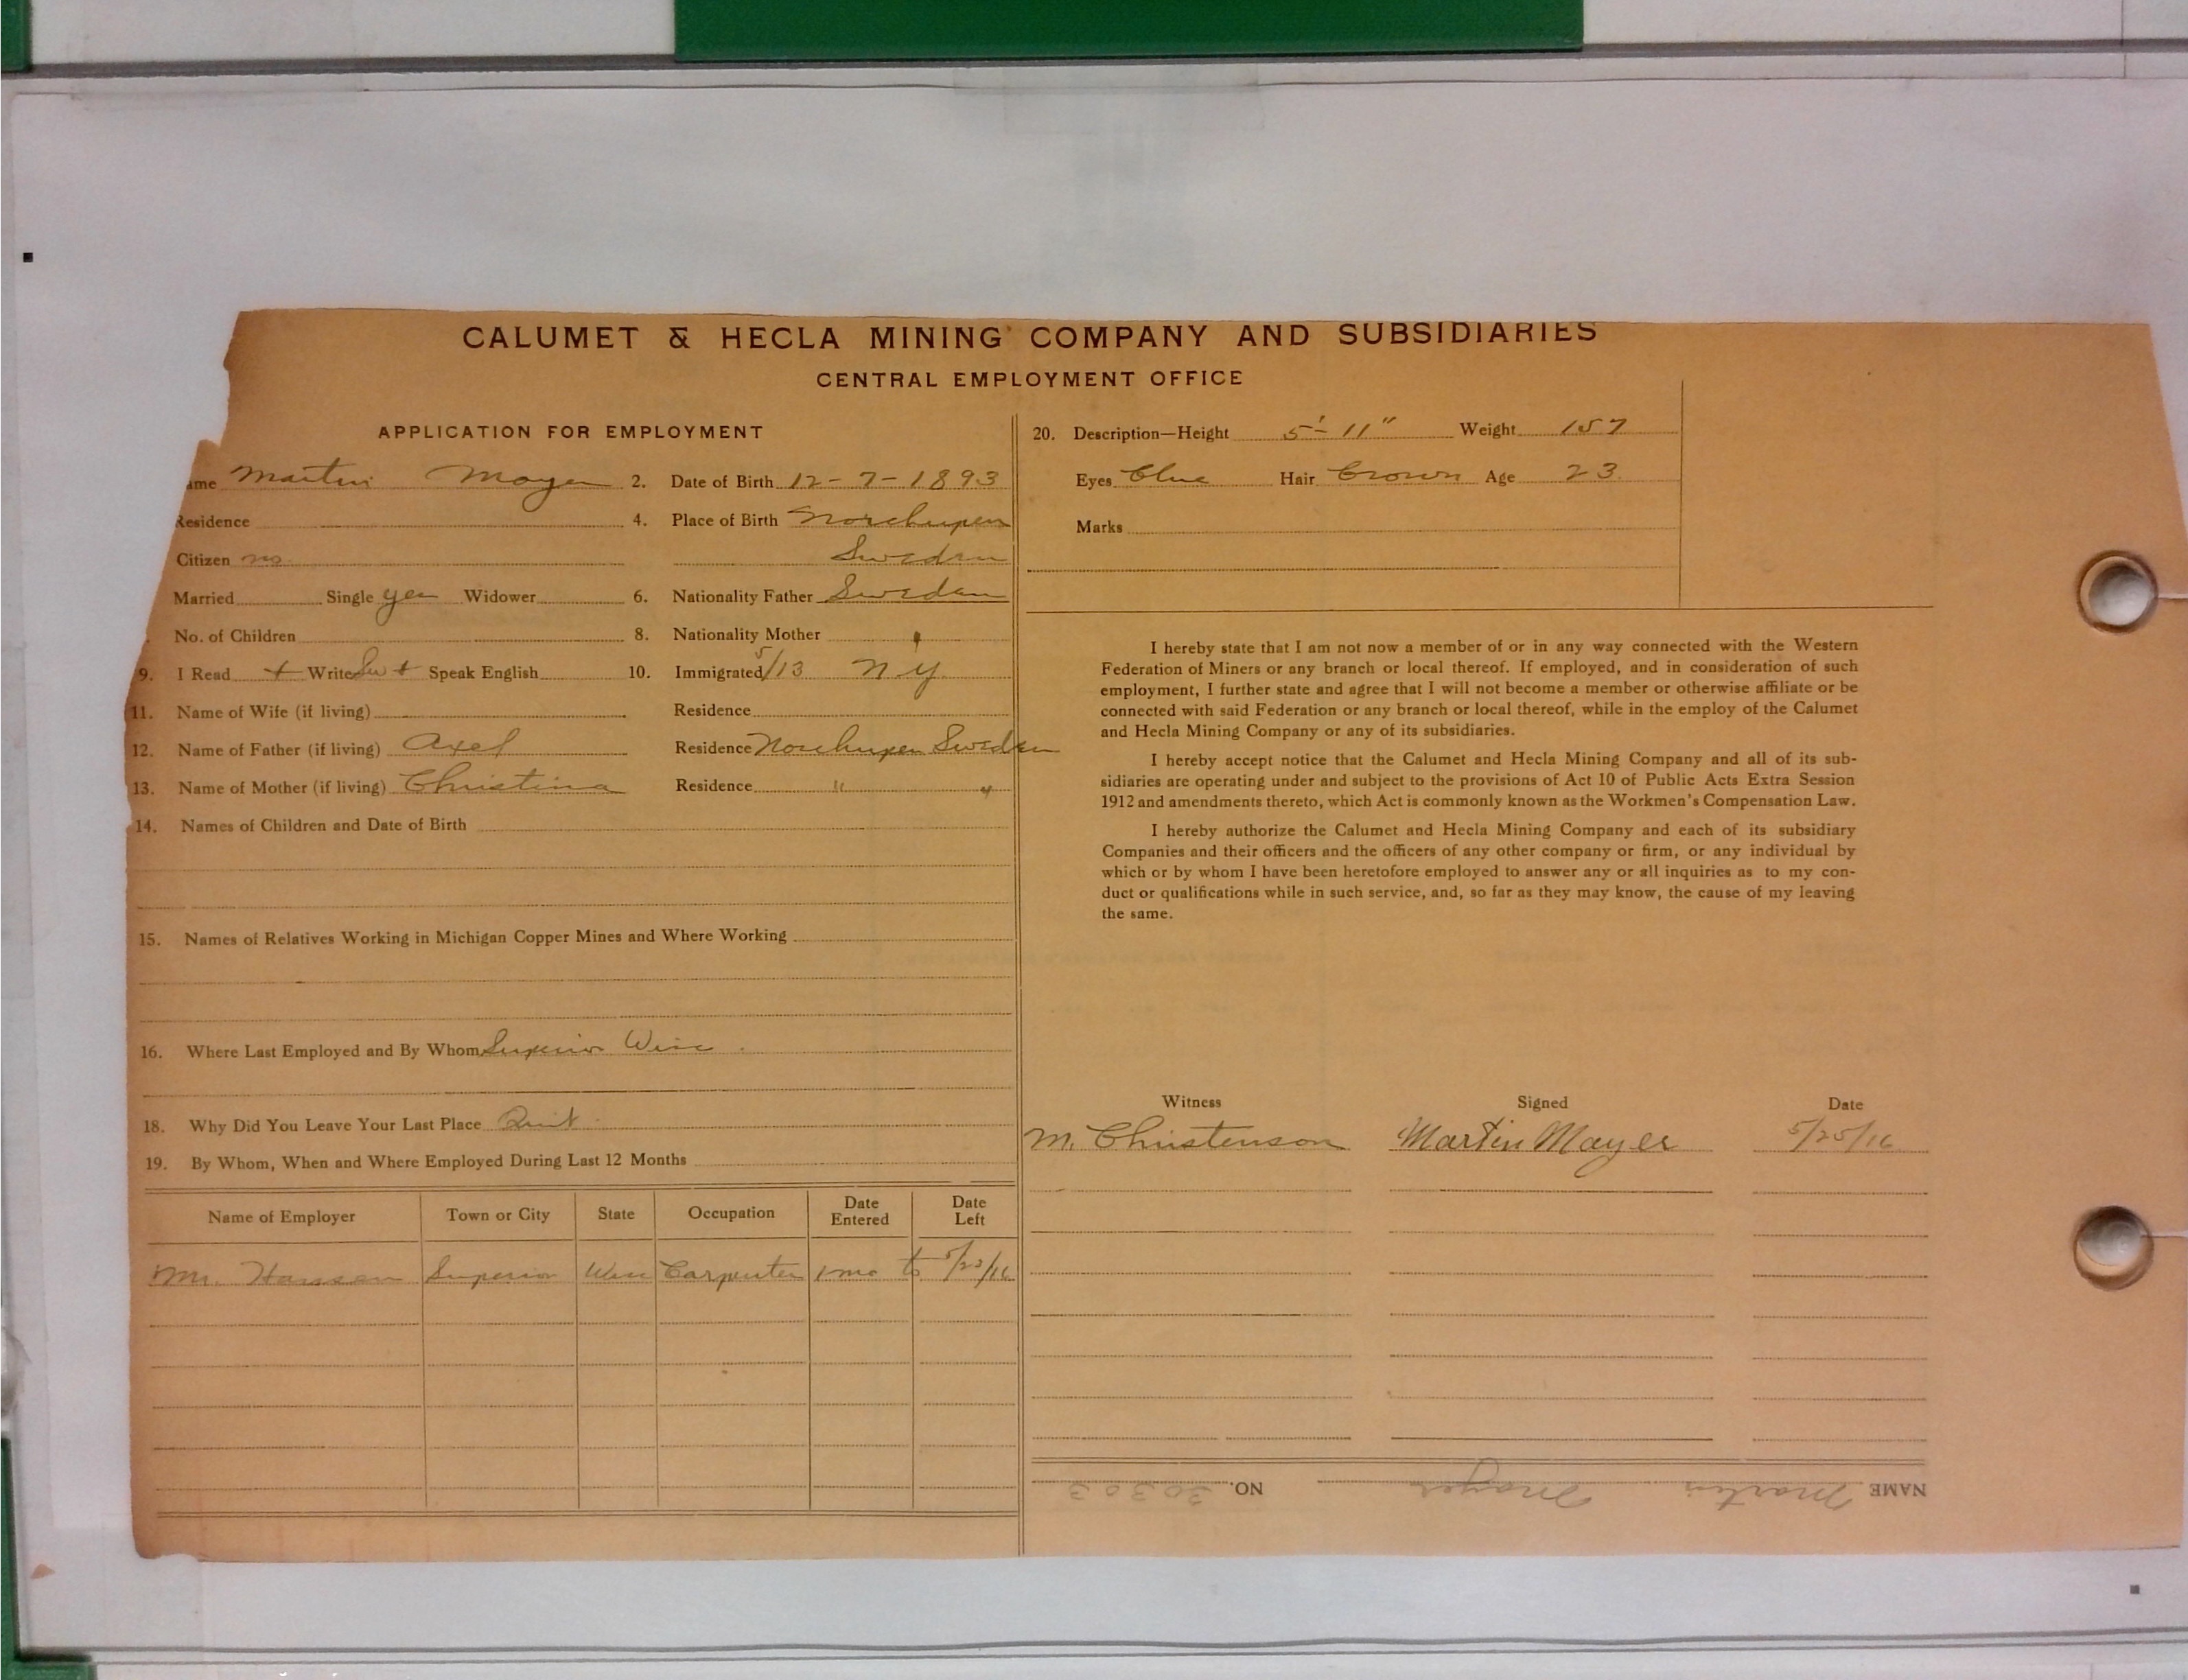 CALUMET & HECLA MINING COMPANY AND SUBSIDIARIES
CENTRAL EMPLOYMENT OFFICE
APPLICATION FOR EMPLOYMENT
ame Martin Mayer 2. Date of Birth 12-7-1893
Residence 4. Place of Birth Norchupen
Citizen no Sweden
Married Single yes Widower 6. Nationality Father Sweden
No. of Children 8. Nationality Mother "
9. I Read + Write Sw + Speak English 10. Immigrated 5/13 N Y
11. Name of Wife (if living) Residence
12. Name of Father (if living) Axel Residence Norchupen Sweden
13. Name of Mother (if living) Christina Residence " "
14. Names of Children and Date of Birth
15. Names of Relatives Working in Michigan Copper Mines and Where Working
16. Where Last Employed and By Whom Superior Wisc
18. Why Did You Leave Your Last Place Quit
19. By Whom, When and Where Employed During Last 12 Months
Name of Employer Town or City State Occupation Date Entered Date Left
Mr. Hansen Superior Wisc Carpenter 1 mo to 5/23/16
20. Description—Height 5'-11" Weight 157
Eyes Blue Hair Brown Age 23
Marks
I hereby state that I am not now a member of or in any way connected with the Western
Federation of Miners or any branch or local thereof. If employed, and in consideration of such
employment, I further state and agree that I will not become a member or otherwise affiliate or be
connected with said Federation or any branch or local thereof, while in the employ of the Calumet
and Hecla Mining Company or any of its subsidiaries.
I hereby accept notice that the Calumet and Hecla Mining Company and all of its sub-
sidiaries are operating under and subject to the provisions of Act 10 of Public Acts Extra Session
1912 and amendments thereto, which Act is commonly known as the Workmen's Compensation Law.
I hereby authorize the Calumet and Hecla Mining Company and each of its subsidiary
Companies and their officers and the officers of any other company or firm, or any individual by
which or by whom I have been heretofore employed to answer any or all inquiries as to my con-
duct or qualifications while in such service, and, so far as they may know, the cause of my leaving
the same.
Witness Signed Date
M. Christenson Martin Mayer 5/25/16
NAME Martin Mayer NO. 30303